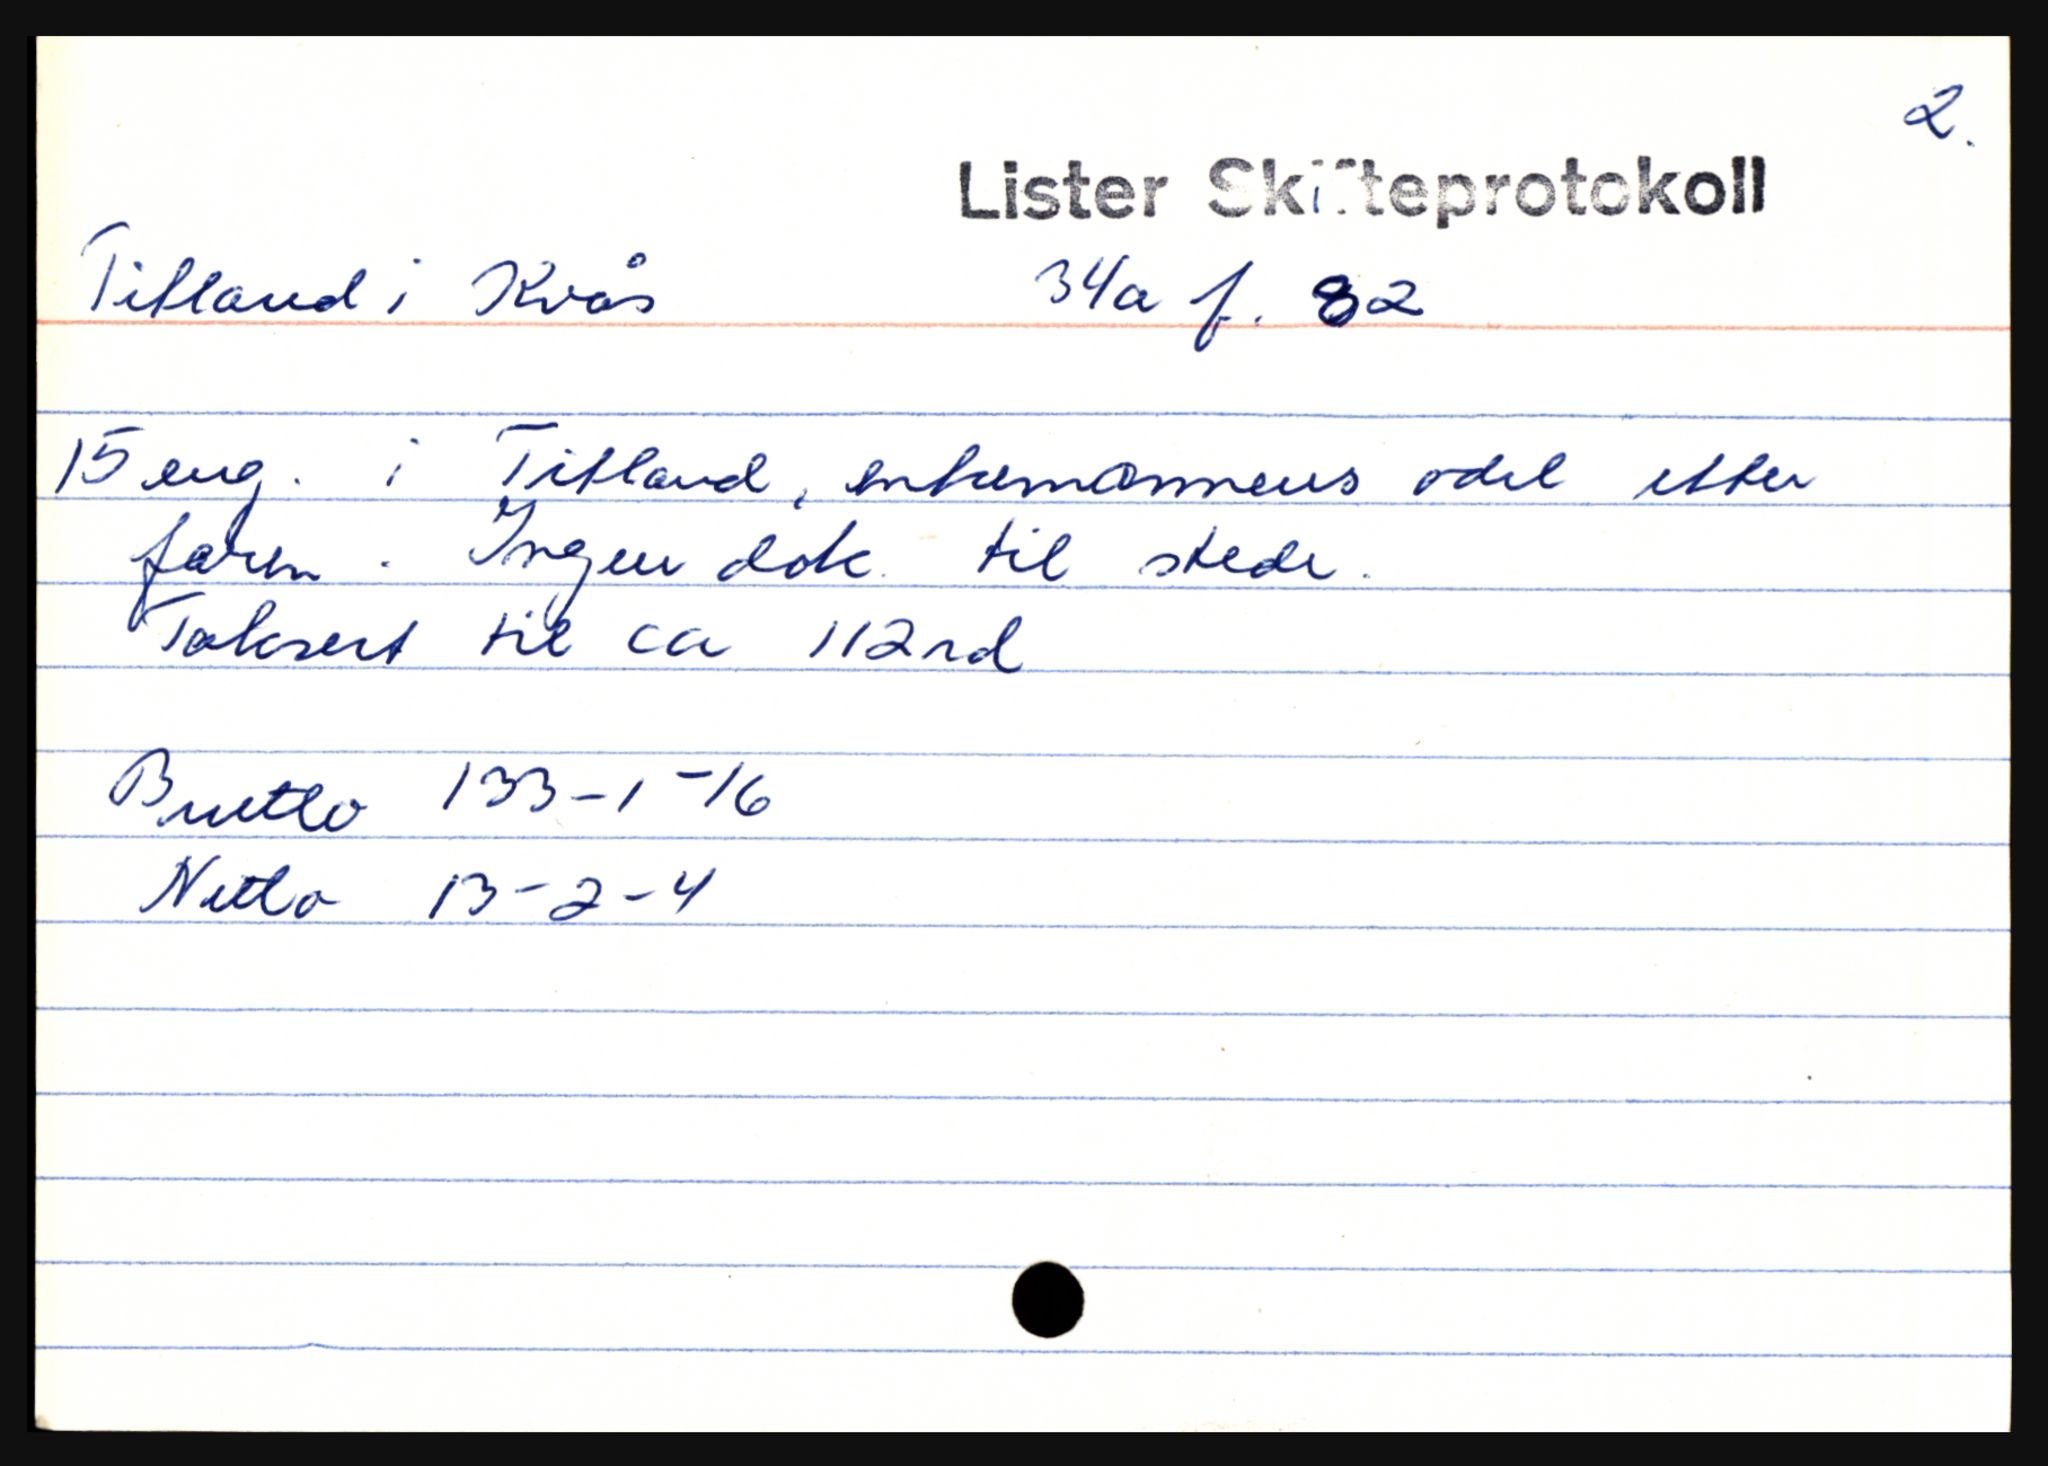 2.
Lister Skifteprotokoll
Titland i Kvås 34a f. 82
15 eng. i Titland, enkemannens odel etter
faren. Ingen dok. til stede.
Taksert til ca 112rd
Brutto 133-1-16
Netto 13-2-4